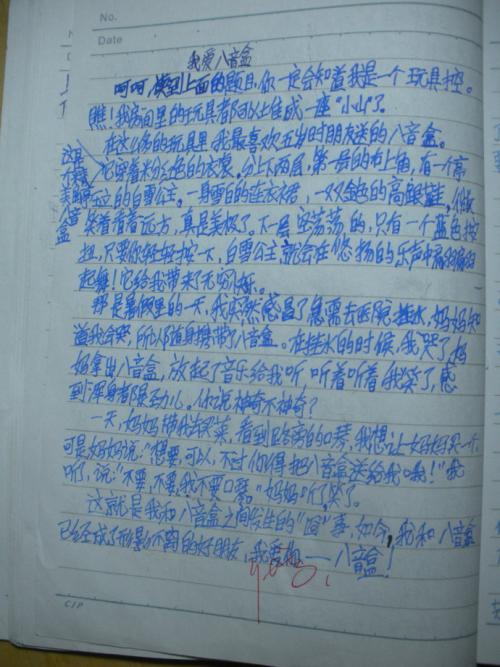 No.
Date
我爱八音盒
呵呵,读到上面的题目,你一定会知道我是一个玩具控。
瞧!我房间里的玩具都可以堆成一座"小山"了。
在这么多的玩具里,我最喜欢五岁时朋友送的八音盒。
它穿着粉红色的衣裳,分上下两层,第一层的右上角,有一个亭
亭玉立的白雪公主。一身雪白的连衣裙,一双金色的高跟鞋,
笑着看着远方,真是美极了。下一层空荡荡的,只有一个蓝色按
扭,只要你轻轻按一下,白雪公主就会在悠扬的乐声中翩翩
起舞!它给我带来了无穷
那是暑假里的一天,我突然感冒了,急需去医院挂水,妈妈知
道我会哭,所以随身携带了八音盒。在挂水的时候,我哭了,妈
妈拿出八音盒,放起了音乐给我听,听着听着我笑了,感
到浑身都是劲儿。你说神奇不神奇?
一天,妈妈带我去买菜,看到路旁的口琴,我想让妈妈买一个
可是妈妈说:"想要可以,不过你得把八音盒送给我哦!"我
听了,说:"不要,不要,我不要口琴。"妈妈听了笑了。
这就是我和八音盒之间发生的" "事,如今,我和八音盒
已经成了形影不离的好朋友,我爱 ——八音盒!
CIP